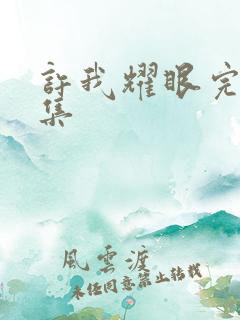 許我耀眼完
集
風雲渡
未经同意禁止转载